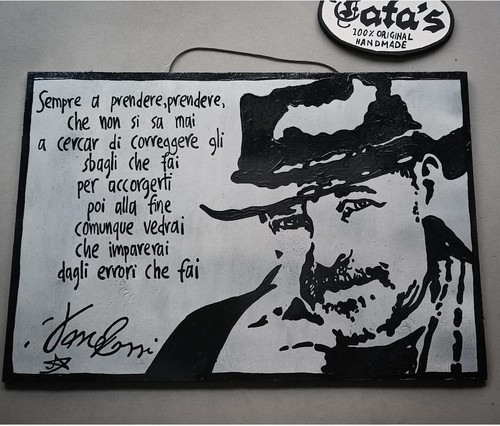 Tata's
100% ORIGINAL
HANDMADE
Sempre a prendere,prendere,
che non si sa mai
a cercar di correggere gli
sbagli che fai
per accorgerti
poi alla fine
comunque vedrai
che imparerai
dagli errori che fai